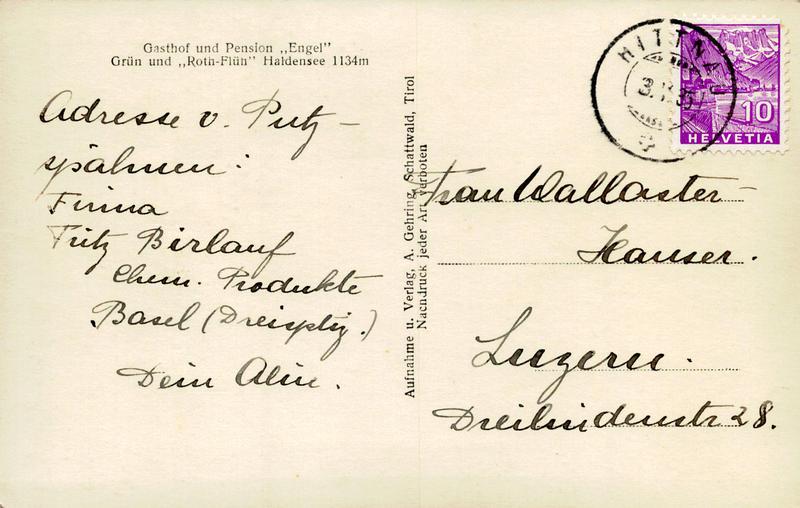 Gasthof und Pension „Engel"
Grün und „Roth-Flüh" Haldensee 1134m
Adresse v. Putz-
spähnen:
Firma
Fritz Birlauf
Chem. Produkte
Basel (Dreispitz.)
Dein Alin.
Aufnahme u. Verlag, A. Gehring, Schattwald, Tirol
Nachdruck jeder Art verboten
HITTNAU
10
HELVETIA
Frau Wallaster-
Hauser.
Luzern.
Dreilindenstr 28.